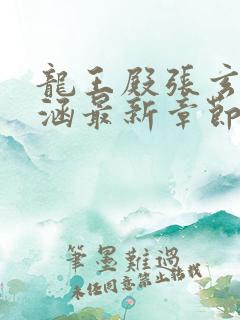 龍王殿張玄
涵最新章節
筆墨難過
未經同意禁止轉載